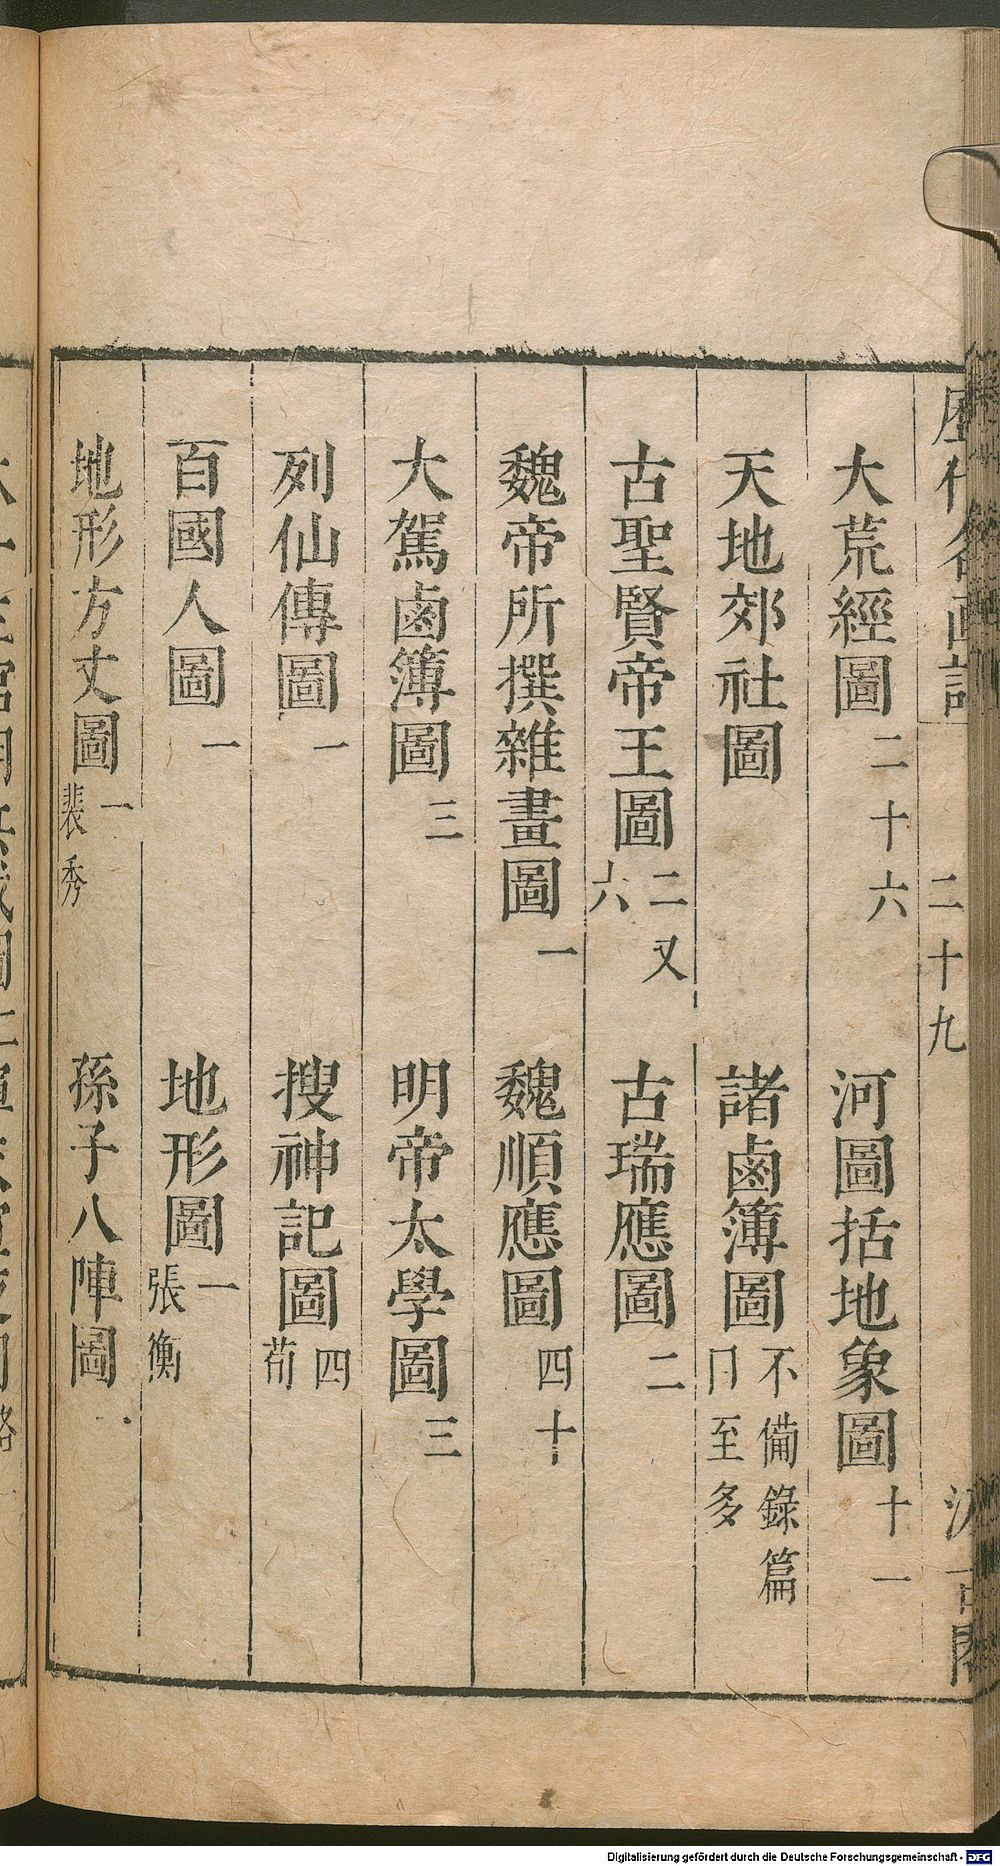 大荒經圖二十六 河圖括地象圖十一
天地郊社圖 諸鹵簿圖不備錄篇卩至多
古聖賢帝王圖二又六 古瑞應圖二
魏帝所撰雜畫圖一 魏順應圖四十
大駕鹵簿圖三 明帝太學圖三
列仙傳圖一 搜神記圖四荀
百國人圖一 地形圖一張衡
地形方丈圖一裴秀 孫子八陣圖
二十九
Digitalisierung gefördert durch die Deutsche Forschungsgemeinschaft - DFG